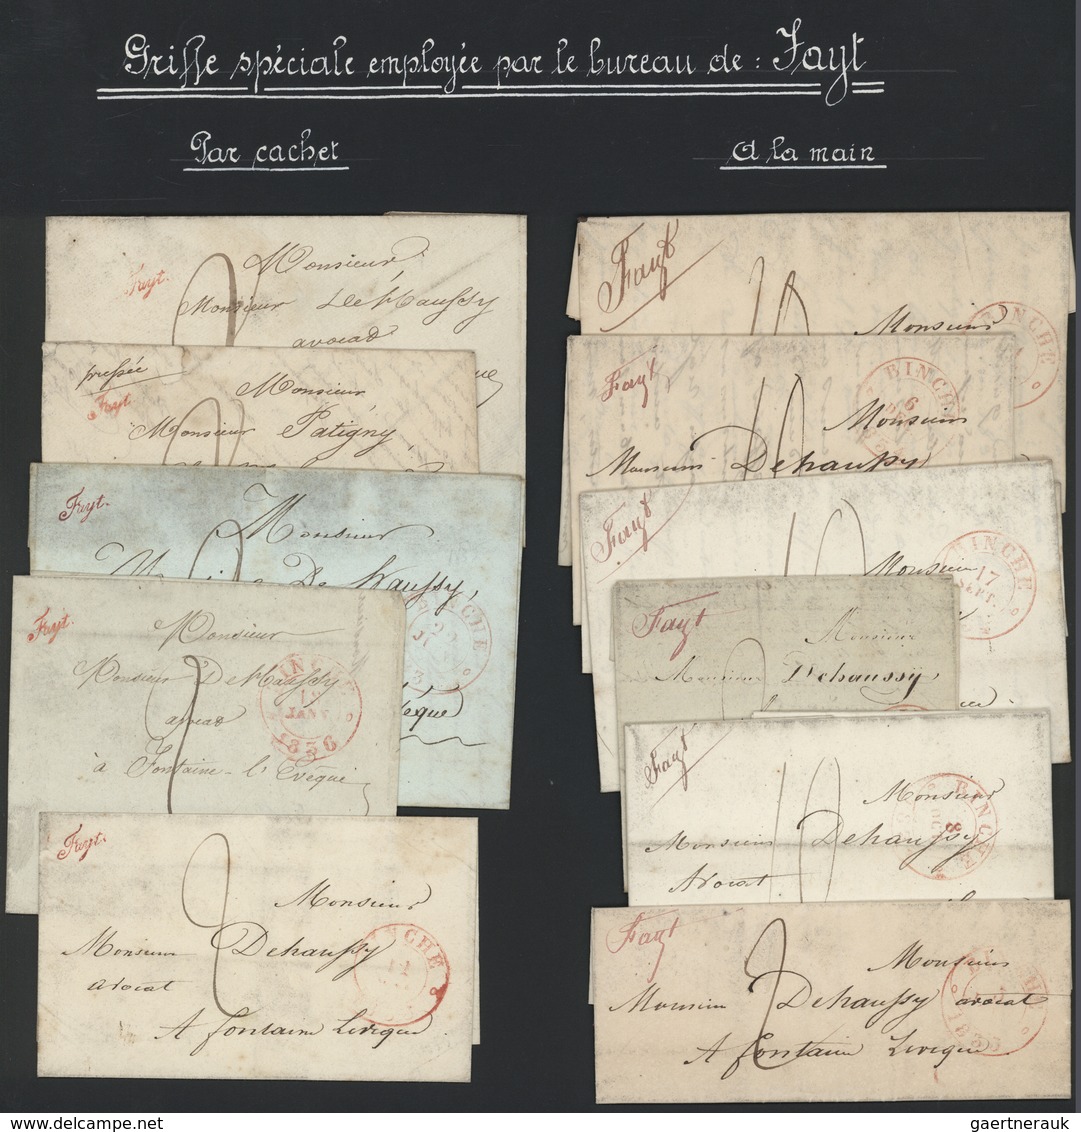 Griffe spéciale employée par le bureau de : Fayt
Par cachet
A la main
Fayt.
Monsieur
Monsieur DeHaussy
avocat
pressée
Fayt.
Monsieur
Monsieur Patigny
Fayt.
Monsieur
De Haussy,
Fayt.
Monsieur
Monsieur DeHaussy
avocat
à Fontaine-l'Evêque
BINCHE
JANV
1836
Fayt.
Monsieur
Monsieur Dehaussy
avocat
A fontaine Leveque
BINCHE
Fayt
Monsieur
BINCHE
Fayt
BINCHE
6
Monsieur
Monsieur Dehaussy
Fayt
Monsieur
BINCHE
17
SEPT.
Fayt
Monsieur
Monsieur Dehaussy
Fayt
Monsieur
Monsieur Dehaussy
Avocat
BINCHE
8
Fayt
Monsieur
Monsieur Dehaussy avocat
A fontaine Leveque
gaertnerauk @ delcampe.net